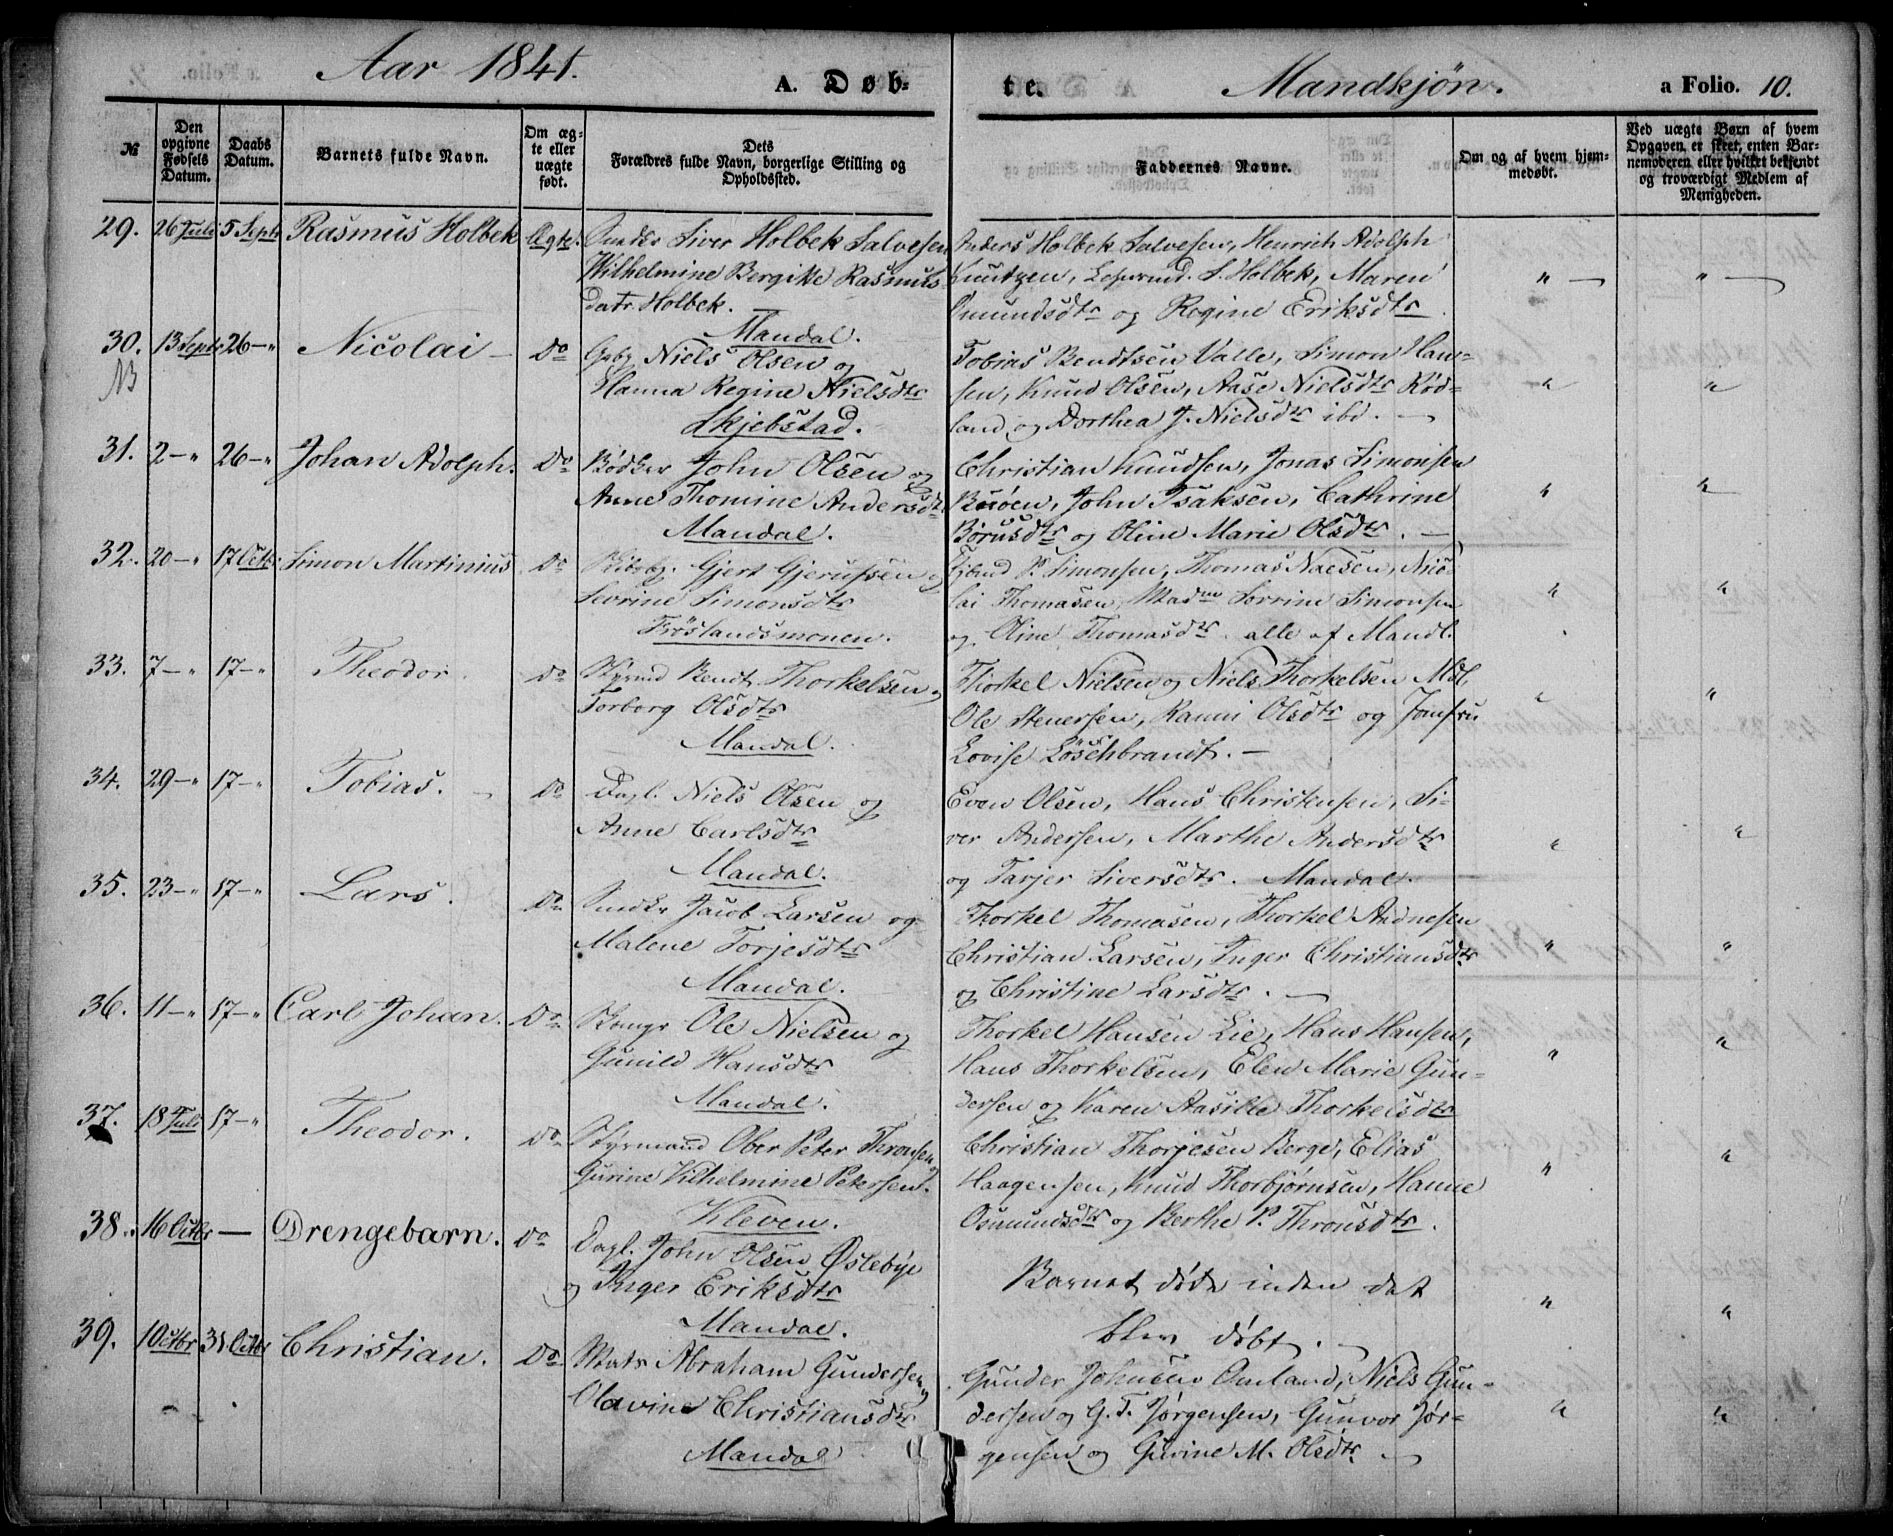 Aar 1841. A. Døb-
te. Mandkjøn. a Folio. 10.
№
Den opgivne Fødsels Datum.
Daabs Datum.
Barnets fulde Navn.
Om æg-
te eller
uægte
født.
Dets
Forældres fulde Navn, borgerlige Stilling og
Opholdssted.
Faddernes Navne.
Om og af hvem hjem-
medøbt.
Ved uægte Børn af hvem
Opgaven er skeet, enten Bar-
nemoderen eller hvilket bekjendt
og troværdigt Medlem af
Menigheden.
29. 26 Juli 5 Septr Rasmus Holbek Ægte. Snedkr Siver Holbek Salvesen
Wilhelmine Bergitte Rasmus-
datr Holbek.
Mandal.
Anders Holbek Salvesen, Henrich Adolph
Knutzen, S. Holbek, Maren
Omundsdtr og Regine Eriksdtr.
" — " —
30. 13 Septr 26 — " Nicolai — Do Gbg Niels Olsen og
NB
Hanna Regine Nielsdtr
Skjebstad.
Tobias Bendtsen Valle, Simon Han-
sen, Knud Olsen, Aase Nielsdtr Rød-
land og Dorthea J. Nielsdtr ibd. —
" "
31. 2 — " 26 — " Johan Adolph. Do Bødker John Olsen og
Anne Thomine Andersdtr
Mandal.
Christian Knudsen, Jonas Simonsen
Buøen, John Isaksen, Cathrine
Børusdtr og Oline Marie Olsdtr. —
" "
32. 20 — " 17 Octbr. Simon Martinius Do Gjert Gjerulfsen og
Sevrine Simonsdtr
Frøslandsmonen.
P. Simonsen, Thomas Naesen, Nico-
lai Thomasen, Madme Sorrine Simonsen
og Oline Thomasdtr. alle af Mandl.
" "
33. 7 — " 17 — " Theodor. Do Styrmd Bendt Thorkelsen og
Torborg Olsdtr
Mandal.
Thorkel Nielsen og Niels Thorkelsen Mdl,
Ole Stenersen, Ranni Olsdtr og Jomfru
Lovise Löschbrandt. —
" "
34. 29 — " 17 — " Tobias. — Do Dagl. Niels Olsen og
Anne Carlsdtr
Mandal.
Even Olsen, Hans Christensen, Si-
ver Andersen, Marthe Andersdtr
og Tarjer Siversdtr. Mandal.
" "
35. 23 — " 17 — " Lars. Do Snedkr Jacob Larsen og
Malene Torjesdtr
Mandal.
Thorkel Thomasen, Thorkel Andnesen
Christian Larsen, Inger Christiansdtr
og Christine Larsdtr. —
" "
36. 11 — " 17 — " Carl Johan. Do Ole Nielsen og
Gunild Hansdtr
Mandal.
Thorkel Hansen Lie, Hans Hansen,
Hans Thorkelsen, Elen Marie Gun-
dersen og Karen Aasille Thorkelsdtr
" "
37. 18 Juli 17 — " Theodor. Do Styrmand Ober Peter Thronsen og
Gurine Vilhelmine Petersen.
Kleven.
Christian Thorjesen Berge, Elias
Haagensen, Knud Thorbjørnsen, Hanne
Osmundsdtr og Berthe P. Thronsdtr.
" "
38. 16 Octbr — Drengebarn. Do Dagl. John Olsen Østebye
og Inger Eriksdtr
Mandal.
Barnet døde inden det
blev døbt. —
" "
39. 1 Octbr 31 Octbr Christian. Do Matr Abraham Gundersen og
Olavine Christiansdtr
Mandal
Gunder Johnsen Omland, Niels Gun-
dersen og G. T. Jørgensen, Gunvor Jør-
gensen og Gurine M. Olsdtr —
" "